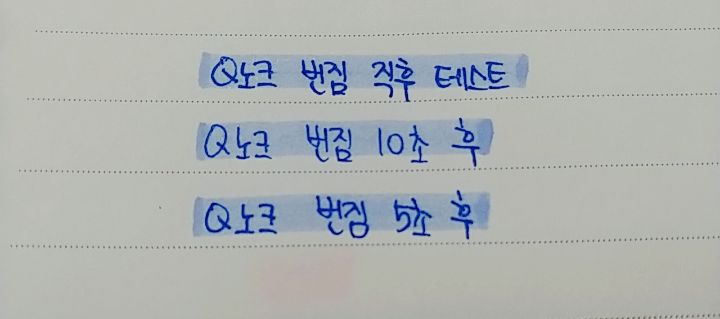 Q노크 번짐 직후 테스트
Q노크 번짐 10초 후
Q노크 번짐 5초 후